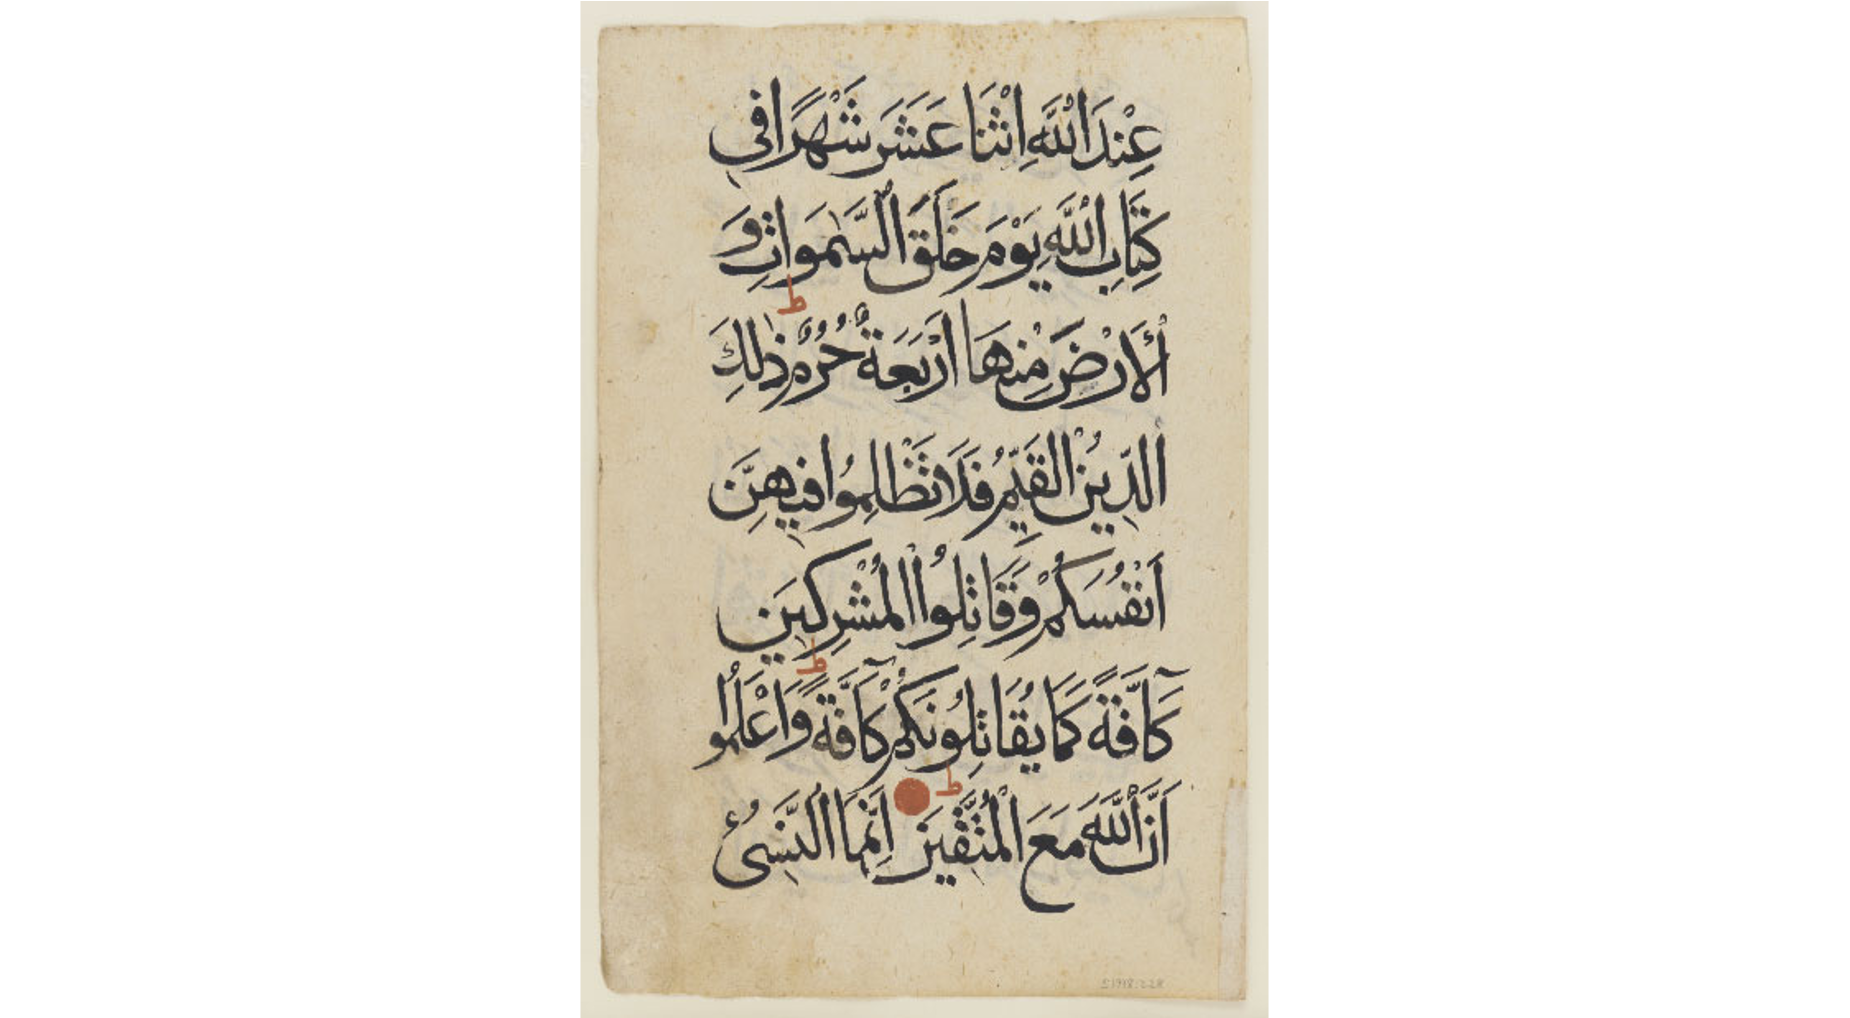 عِنْدَ اللّٰهِ اثْنَا عَشَرَ شَهْرًا فِي
كِتَابِ اللّٰهِ يَوْمَ خَلَقَ السَّمٰوَاتِ وَ
الْاَرْضَ مِنْهَا اَرْبَعَةٌ حُرُمٌ ذٰلِكَ
الدِّينُ الْقَيِّمُ فَلَا تَظْلِمُوا فِيهِنَّ
اَنْفُسَكُمْ وَقَاتِلُوا الْمُشْرِكِينَ
كَآفَّةً كَمَا يُقَاتِلُونَكُمْ كَآفَّةً وَاعْلَمُوا
اَنَّ اللّٰهَ مَعَ الْمُتَّقِينَ اِنَّمَا النَّسِئُ
ط
ط
ط